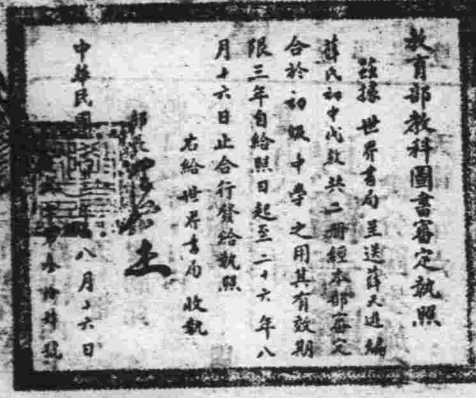 教育部教科圖書審定執照
茲據 世界書局 呈送薛天遊編
薛氏初中代數共二冊經本部審定
合於初級中學之用其有效期
限三年自給照日起至二十六年八
月十六日止合行發給執照
右給世界書局 收執
部長
中華民國 八月十六日